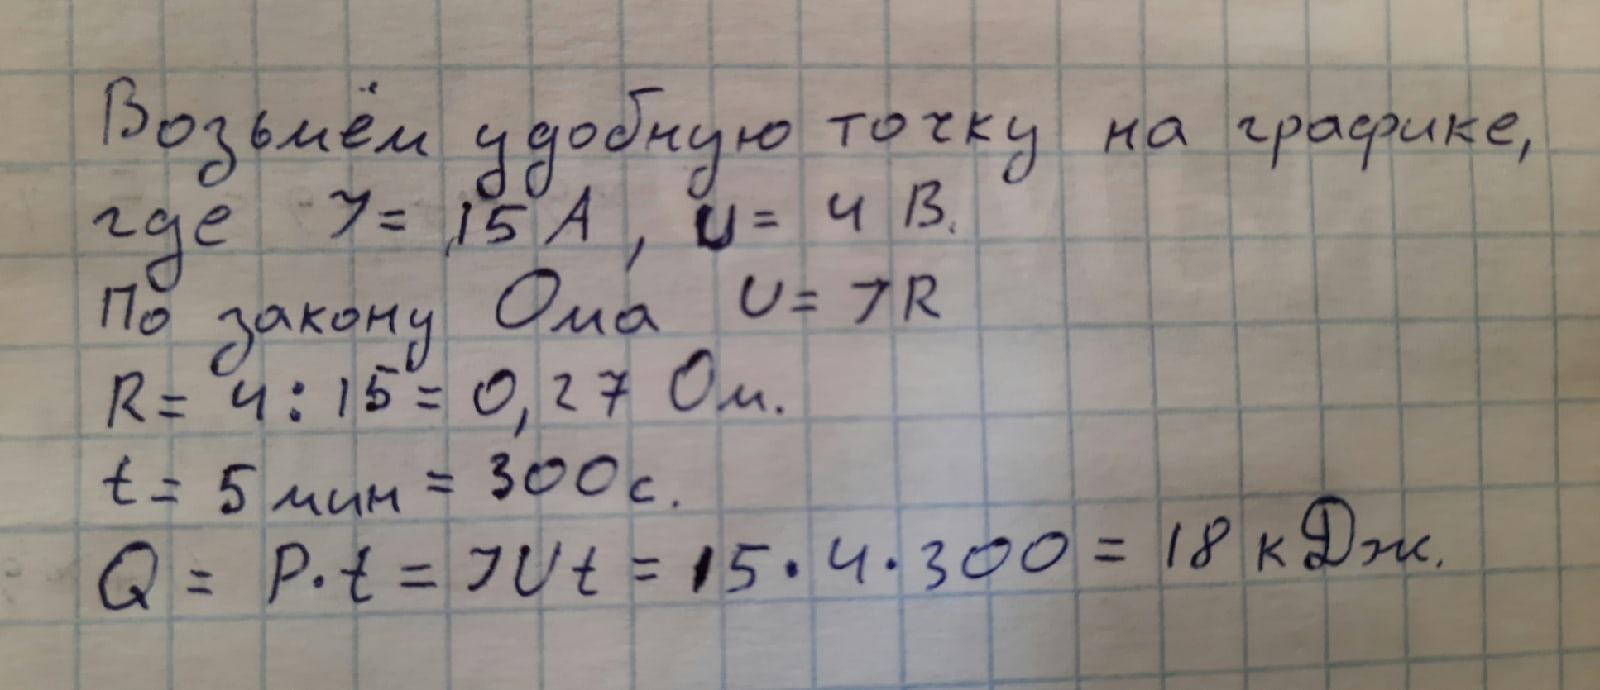 Возьмём удобную точку на графике,
где I = 15 А, U = 4 В.
По закону Ома U = IR
R = 4 : 15 = 0,27 Ом.
t = 5 мин = 300 с.
Q = P·t = IUt = 15·4·300 = 18 кДж.